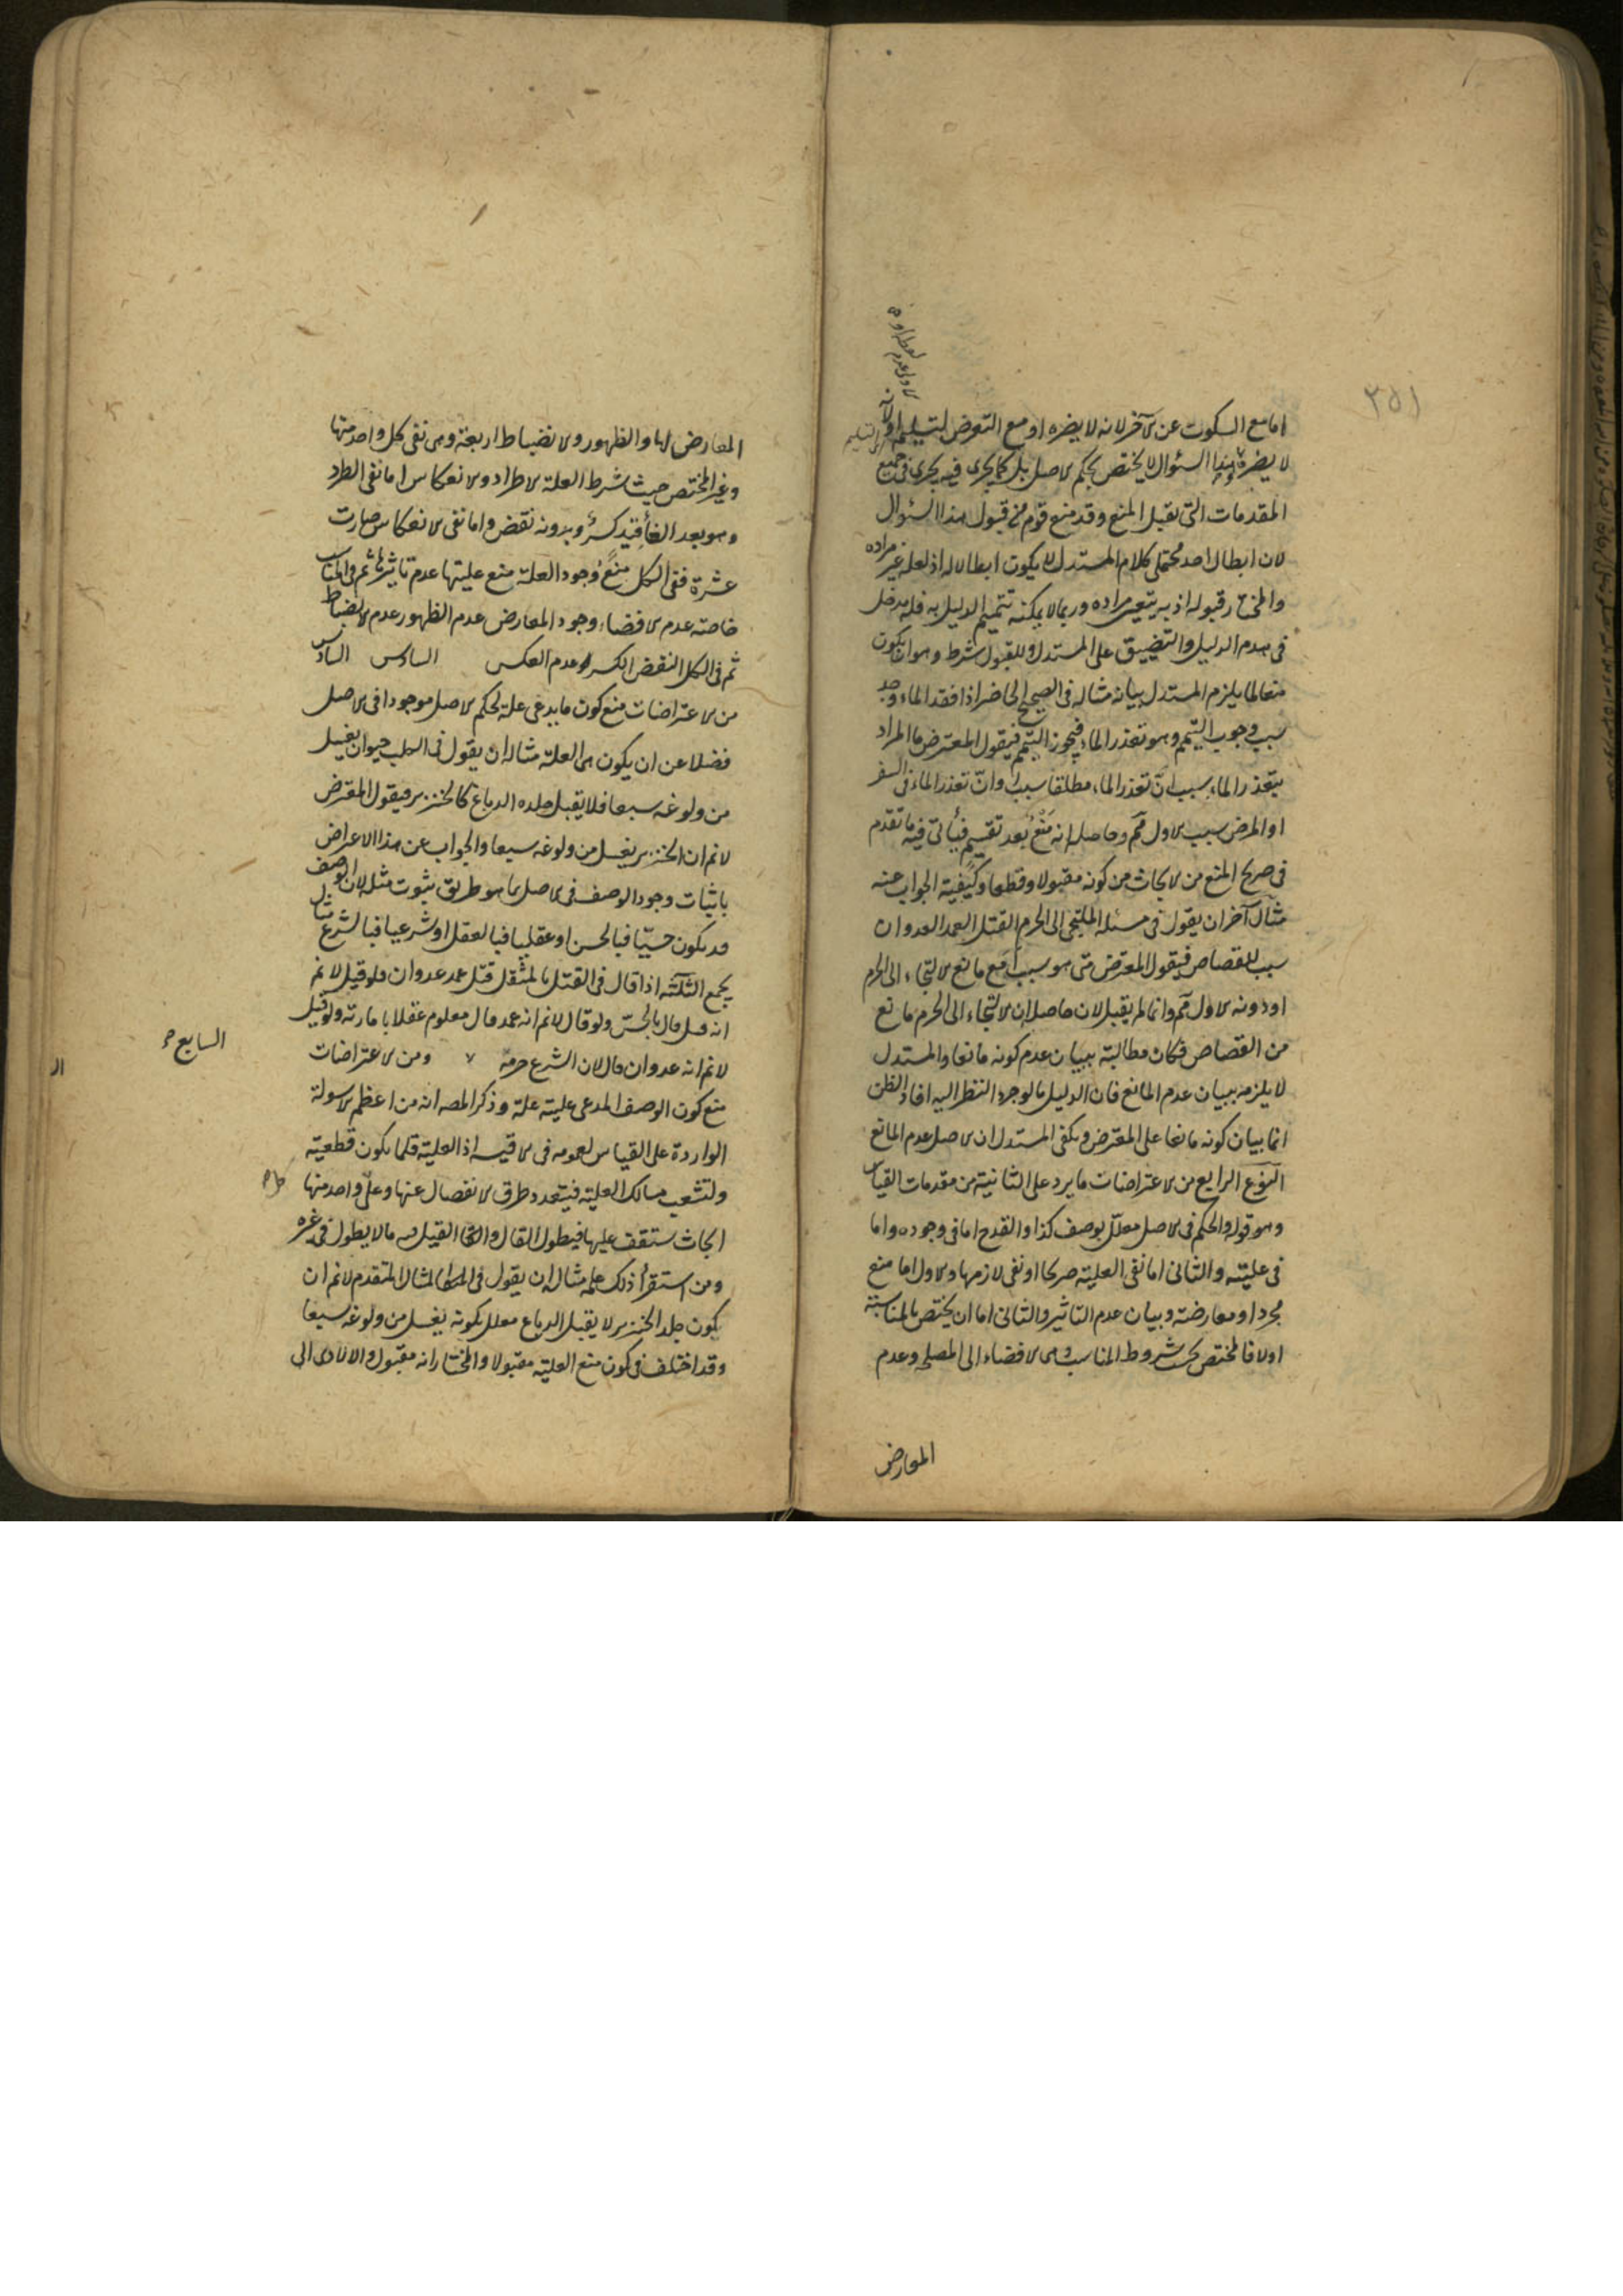 ٢٥١
اما مع السكوت عن الآخر لانه لا يضره او مع التعرض لتسليمه اولا
لا يضره وهذا السؤال لا يختص بحكم الاصل بل كما يجرى فيه يجرى فى جميع
المقدمات التى تقبل المنع وقد منع قوم من قبول هذا السؤال
لان ابطال احد محتملى كلام المستدل لا يكون ابطالا له اذ لعله غير مراده
والمختار قبوله اذ به يتعين مراده وربما لا يمكنه تتميم الدليل به فله مدخل
فى هدم الدليل والتضييق على المستدل وللقبول شرط وهو ان يكون
منعا لما يلزم المستدل بيانه مثاله فى الصحيح الحاضر اذا فقد الماء وجد
سبب وجوب التيمم وهو تعذر الماء فيجوز التيمم فيقول المعترض ما المراد
بتعذر الماء سبب ان تعذر الماء مطلقا سبب او ان تعذر الماء فى السفر
او المرض سبب الاول مم وحاصله انه منع بعد تقسيم فيأتى فيه ما تقدم
فى صريح المنع من الابحاث من كونه مقبولا وقطعا وكيفية الجواب عنه
مثال آخر ان يقول فى مسئلة الملتجى الى الحرم القتل العمد العدوان
سبب للقصاص فيقول المعترض متى هو سبب أمع مانع الالتجاء الى الحرم
او دونه الاول مم وانما لم يقبل لان حاصله ان الالتجاء الى الحرم مانع
من القصاص فكان مطالبة ببيان عدم كونه مانعا والمستدل
لا يلزمه بيان عدم المانع فان الدليل ما لو جرد النظر اليه افاد الظن
انما بيان كونه مانعا على المعترض ويكفى المستدل ان الاصل عدم المانع
النوع الرابع من الاعتراضات ما يرد على الثانية من مقدمات القياس
وهو قوله والحكم فى الاصل معلل بوصف كذا والقدح اما فى وجوده واما
فى عليته والثانى اما نفى العلية صريحا او نفى لازمها والاول اما منع
مجرد او معارضة وبيان عدم التاثير والثانى اما ان يختص بالمناسبة
او لا فالمختص بحسب شروط المناسب وهى الافضاء الى المصلحة وعدم
المعارض
المعارض لها والظهور والانضباط اربعة وهى نفى كل واحد منها
وغير المختص حيث شرط العلة الاطراد والانعكاس اما نفى الطرد
وهو بعد الغاء قيد كسر وبدونه نقض واما نفى الانعكاس صارت
عشرة ففى الكل منع وجود العلة منع عليتها عدم تاثيرها ثم فى المناسب
خاصة عدم الافضاء وجود المعارض عدم الظهور عدم الانضباط
ثم فى الكل النقض الكسر وعدم العكس السادس السادس
من الاعتراضات منع كون ما يدعى علة لحكم الاصل موجودا فى الاصل
فضلا عن ان يكون هى العلة مثاله ان يقول فى الكلب حيوان يغسل
من ولوغه سبعا فلا يقبل جلده الدباغ كالخنزير فيقول المعترض
لا نم ان الخنزير يغسل من ولوغه سبعا والجواب عن هذا الاعراض
باثبات وجود الوصف فى الاصل بما هو طريق ثبوت مثله لان الوصف
قد يكون حسيا فبالحس او عقليا فبالعقل او شرعيا فبالشرع مثال
يجمع الثلثة اذا قال فى القتل بالمثقل قتل عمد عدوان فلو قيل لا نم
انه قتل قال بالحس ولو قال لا نم انه عمد قال معلوم عقلا بامارته ولو قيل
لا نم انه عدوان قال لان الشرع حرمه ٧ ومن الاعتراضات
السابع
منع كون الوصف المدعى عليته علة وذكر المصه انه من اعظم الاسولة
الواردة على القياس لعمومه فى الاقيسة اذ العلية قلما يكون قطعية
ولتشعب مسالك العلية فيتعدد طرق الانفصال عنها وعلى واحد منها
ابحاث ستقف عليها فيطول القال والقيل فيه مالا يطول فى غيره
ومن استقرأ ذلك علمه مثاله ان يقول فى المثال المتقدم لا نم ان
كون جلد الخنزير لا يقبل الدباغ معلل بكونه يغسل من ولوغه سبعا
وقد اختلف فى كون منع العلية مقبولا والمختار انه مقبول والا لادى الى